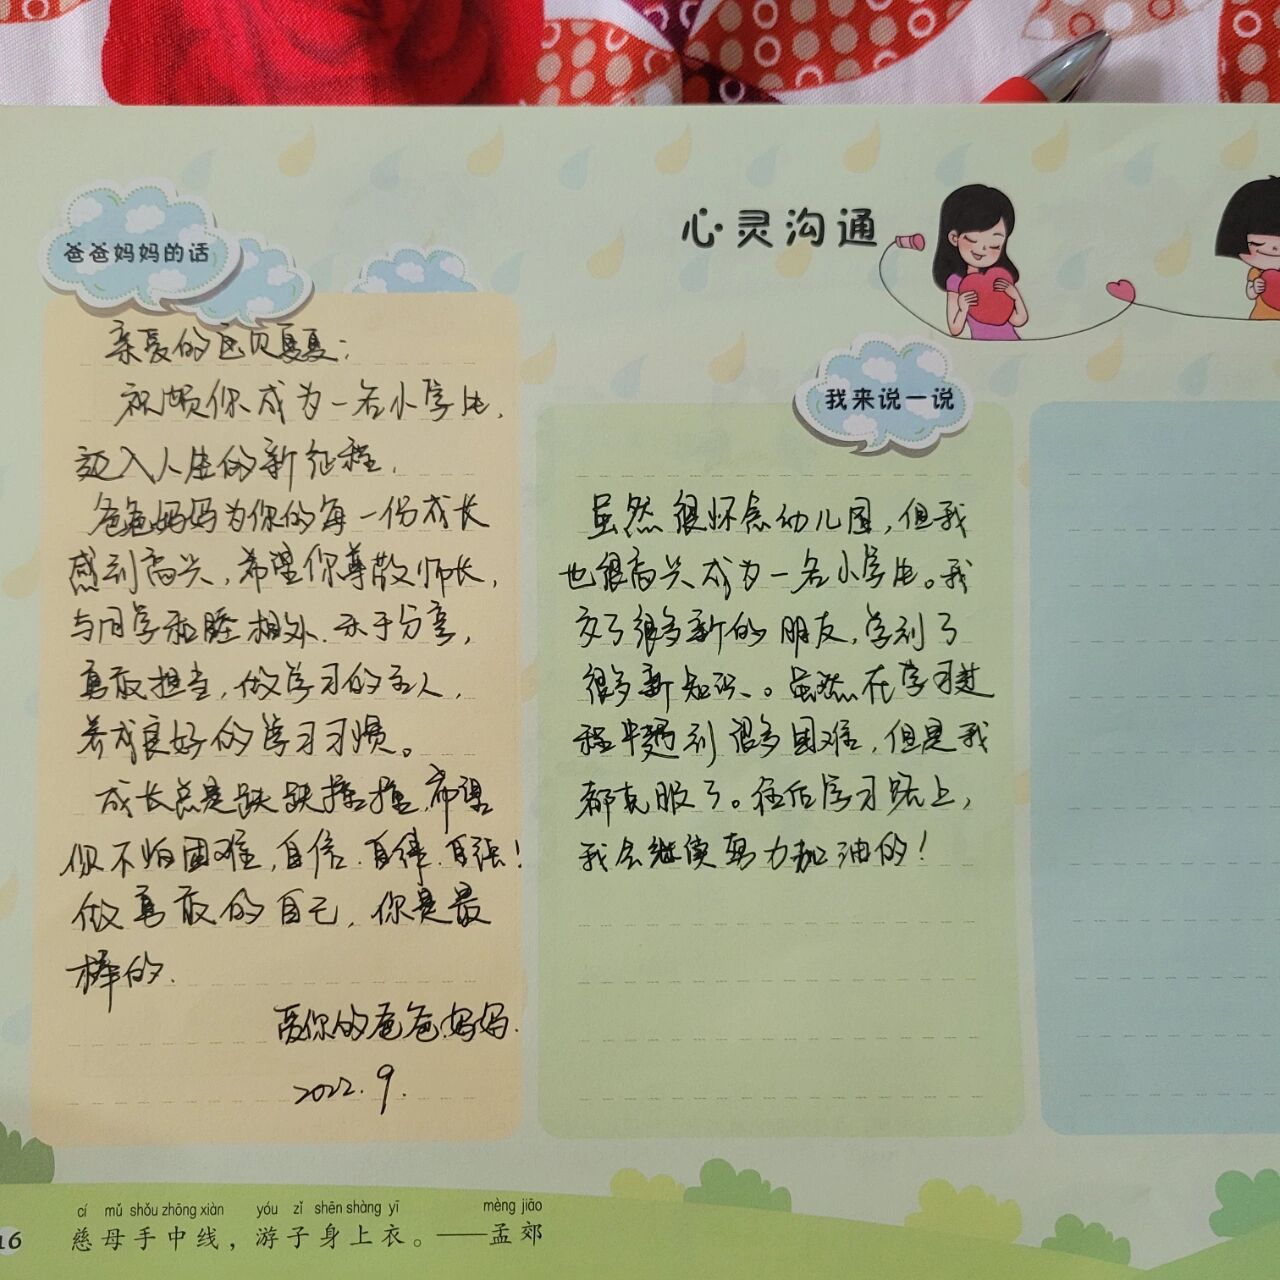 心灵沟通
爸爸妈妈的话
亲爱的宝贝夏夏：
祝贺你成为一名小学生，
迈入人生的新征程．
爸爸妈妈为你的每一份成长
感到高兴，希望你尊敬师长，
与同学和睦相处．乐于分享，
勇敢担当，做学习的主人，
养成良好的学习习惯。
成长总是跌跌撞撞．希望
你不怕困难，自信．自律．自强！
做勇敢的自己，你是最
棒的．
爱你的爸爸妈妈．
2022.9.
我来说一说
虽然很怀念幼儿园，但我
也很高兴成为一名小学生。我
交了很多新的朋友，学到了
很多新知识。虽然在学习过
程中遇到很多困难，但是我
都克服了。往后学习路上，
我会继续努力加油的！
cí mǔ shǒu zhōng xiàn yóu zǐ shēn shàng yī mèng jiāo
慈母手中线，游子身上衣。——孟郊
16